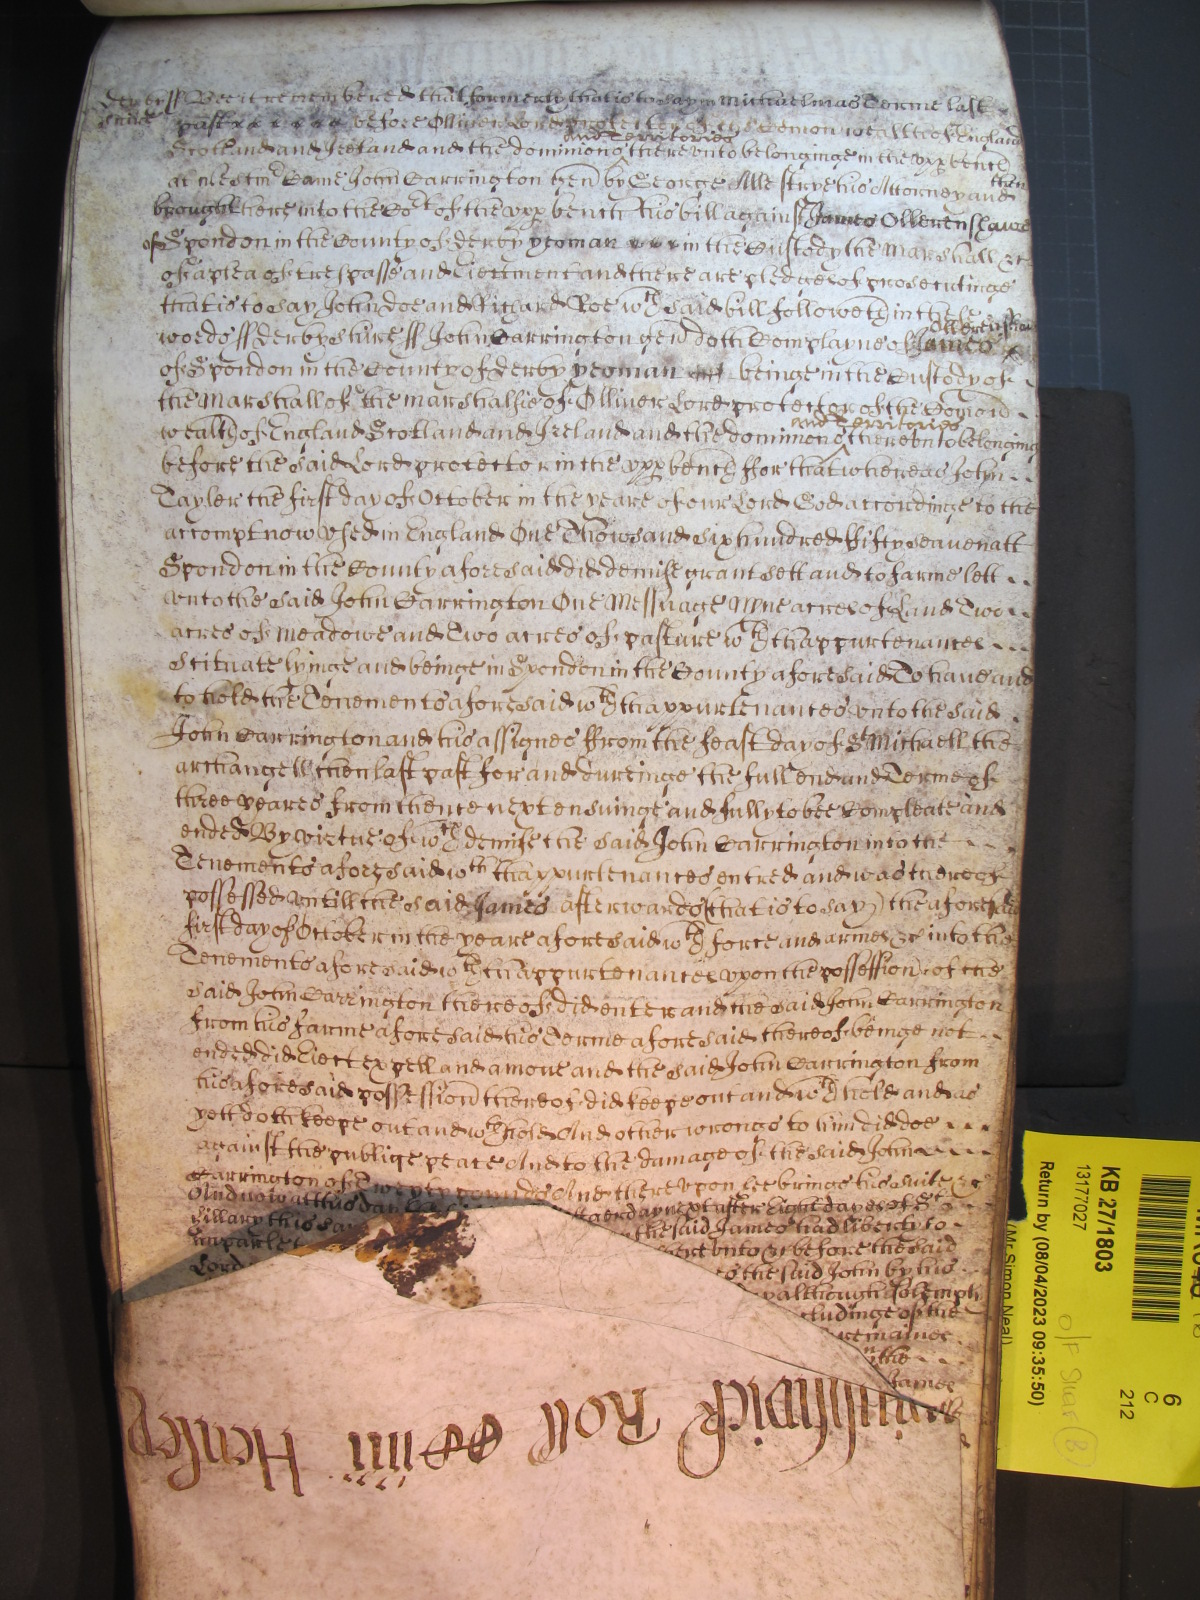 Derby
shire ss Bee it remembered that formerly that is to say in Michaelmas Terme last
past before Olliver Lord protector of the Comon wealth of England
and Territories
Scotland and Ireland and the dominions thereunto belonginge in the upp bench
at Westmr Came John Carrington gen by George Allestrye his Attorney and then
brought here into the Cort of the upp bench his bill against James Ollerenshawe
of Spondon in the County of derby yeoman in the Custody the Marshall &c
of a plea of trespasse and Ejectment and there are pledges of prosecutinge
that is to say John Doe and Richard Roe wch said bill followeth in these
Ollerenshaw
wordes ss derbyshire ss John Carrington gen doth Complayne of James
of Spondon in the County of derby yeoman beinge in the Custody of
the Marshall of the marshalsie of Olliver Lord protector of the Comon
and Territories
wealth of England Scotland and Ireland and the dominions thereunto belonging
before the said Lord protector in the upp bench ffor that whereas John
Tayler the first day of October in the yeare of our Lord God accordinge to the
accompt now vsed in England One Thowsand six hundred fifty seaven att
Spondon in the County aforesaid did demise grant sett and to farme lett
vnto the said John Carrington One Messuage Nyne acres of Land Two
acres of meadowe and Two acres of pasture wth thappurtenances
scituate lyinge and beinge in Spondon in the County aforesaid To haue and
to hold the Tenements aforesaid wth thappurtenances vnto the said
John Carrington and his assignes ffrom the feast day of St Michaell the
archangell then last past for and dureinge the full end and Terme of
three yeares from thence next ensuinge and fully to bee Compleate and
ended By virtue of wch demise the said John Carrington into the
Tenements aforesaid wth thappurtenances entred and was thereof
possessed vntill the said James afterwards (that is to say) the aforesaid
first day of October in the yeare aforesaid wth force and armes &c into the
Tenements aforesaid wth thappurtenances vpon the possession of the
said John Carrington thereof did enter and the said John Carrington
from his farme aforesaid his Terme aforesaid thereof beinge not
ended did Eject expell and amove and the said John Carrington from
his aforesaid possession thereof did keepe out and wth held and as
yett doth keepe out and wth hold And other wrongs to him did doe
against the publique peace And to the damage of the said John
Carrington of Twenty pounds And thereupon hee brings his suite &c
And now att this day next after Eight dayes of St
Hillary this sa the said James had liberty to
imparle t vnto &c before the said
Lord the said John by his
although solempl
of the
remaines
the
James
Roll Henley
KB 27/1803
13177027
Return by (08/04/2023 09:35:50)
(Mr Simon Neal)
6
C
212
O/F Shar B